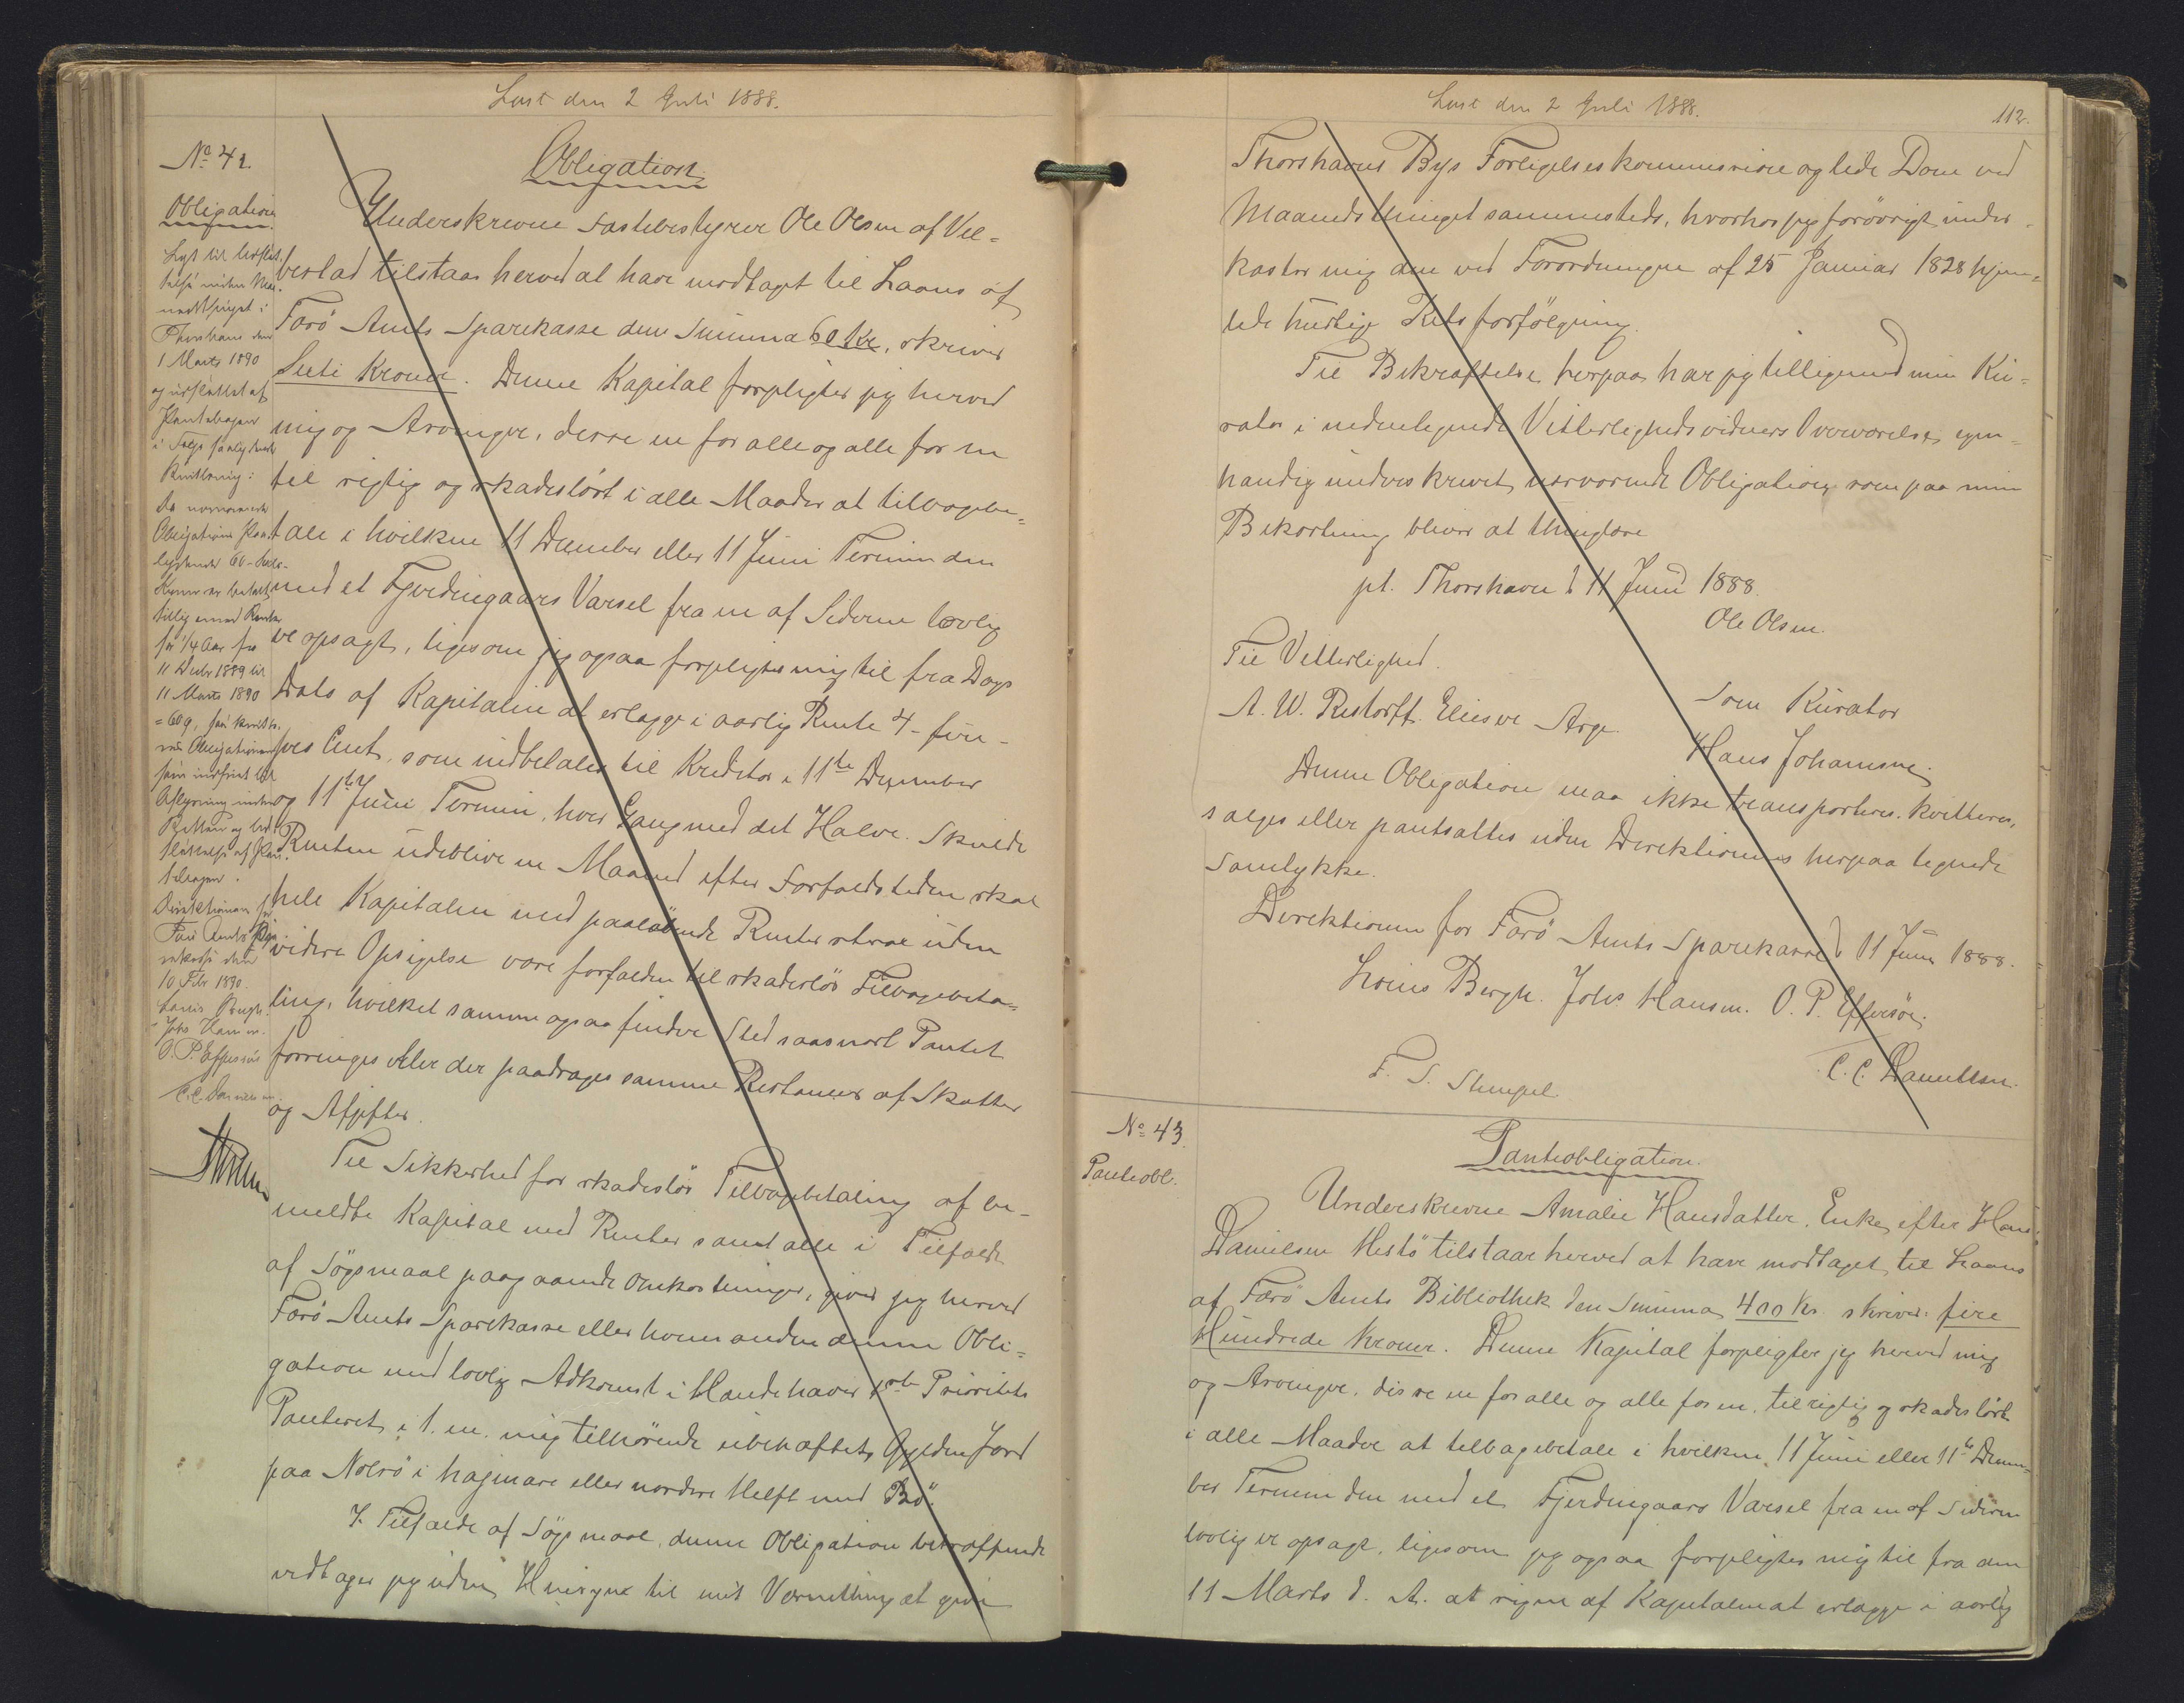 Læst den 2 Juli 1888.
No 42.
Obligation
Lyst til Udslet-
telse inden Maa-
nedsthinget i
Thorshavn den
1 Marts 1890
og udslettet af
Pantebogen
i Følge saalydende
Kvittering:
Da nærværende
Obligations Paa-
lydende 60 
Kroner er betalt
tillig emed Renter
for 1/4 Aar fra
11 Decbr 1889 til
11 Marts 1890
= 60 Ø, saa kvitte-
res Obligationen
som indfriet til
Aflysning inden
Retten og Ud-
slettelse af Pan-
tebogen.
Direktionen for
Færø Amts Spa-
rekasse den
10 Febr 1890.
Louis Bergh.
Johs Hansen.
O. P. Effersöe
C. C. Danielsen.
Obligation
Underskrevne Fastebestyrer Ole Olsen af Vel-
bestad tilstaar herved at have modtaget til Laans af
Færö Amts Sparekasse den Summa 60 Kr, skriver
Sexti Kroner. Denne Kapital forpligter jeg herved
mig og Arvinger, desse en for alle og alle for en
til rigtig og skadeslöst i alle Maader at tilbagebe-
tale i hvilken 11 December eller 11 Juni Termin den
med et Fjerdingaars Varsel fra en af Siderne lovlig
er opsagt, ligesom jeg ogsaa forpligter mig til fra Dags
Dato af Kapitalen at erlægge i aarlig Rente 4- fire-
pro Cent, som indbetales til Kreditor i 11te December
og 11te Juni Termin, hver Gang med det Halve. Skulde
Renten udeblive en Maaned efter Forfaldstiden skal
hele Kapitalen med paalöbende Renter strax uden
videre Opsigelse være forfalden til skadeslös Tilbagebeta-
ling, hvilket samme ogsaa finder Sted saasnart Pantet
forringes eller der paadrages samme Restancer af Skatter
og Afgifter.
Til Sikkerhed for skadeslös Tilbagebetaling af be-
meldte Kapital med Renter samt alle i Tilfælde
af Sögsmaal paagaaende Omkostninger, giver jeg herved
Færö Amts Sparekasse eller hvem anden denne Obli-
gation med lovlig Adkomst i Hænde haver 1ste Prioritets
Panteret i 1. m. mig tilhörende ubehæftet Gylden Jord
paa Nolsö i hagmare eller nordre Helft med Bö.
I Tilfælde af Sögsmaal denne Obligation betræffende
vedtager jeg uden Hensyn til mit Værnething at give
Læst den 2 Juli 1888.
112.
Thorshavns Bys Forligelseskommission og lide Dom ved
Maanedsthinget sammesteds, hvorhos jeg forövrigt under-
kaster mig den ved Forordningen af 25 Januar 1828 hjem-
lede hurtige Retsforfölgning.
Til Bekræftelse herpaa har jeg tilligemed min Ku-
rator i nedentegnede Vitterlighedsvidners Overværelse egen-
hændig underskrevet nærværende Obligation, som paa min
Bekostning bliver at thinglæse
pt. Thorshavn d 11 Juni 1888.
Ole Olsen.
Til Vitterlighed.
A. W. Restorff. Elieser Arge.
Som Kurator
Hans Johannesen.
Denne Obligation maa ikke transporteres, kvitteres,
sælges eller pantsættes uden Direktionens herpaa tegnede
Samtykke.
Direktionen for Færö Amts Sparekasse d 11 Juni 1888.
Louis Bergh. Johs. Hansen. O. P. Effersöe.
C. C. Danielsen.
F. S. Stempel.
No 43.
Panteobl.
Panteobligation.
Underskrevne Amalie Hansdatter, Enke efter Hans
Danielsen Hestö tilstaar herved at have modtaget til Laans
af Færö Amts Bibliothek den Summa 400 Kr. skriver fire
Hundrede Kroner. Denne Kapital forpligter jeg herved mig
og Arvinger, disse en for alle og alle for en, til rigtig og skadeslöst
i alle Maader at tilbagebetale i hvilken 11 Juni eller 11te Decem-
ber Termin den med et Fjerdingaars Varsel fra en af Siderne
lovlig er opsagt, ligesom jeg ogsaa forpligter mig til fra den
11 Marts d. A. at regne af Kapitalen at erlægge i aarlig